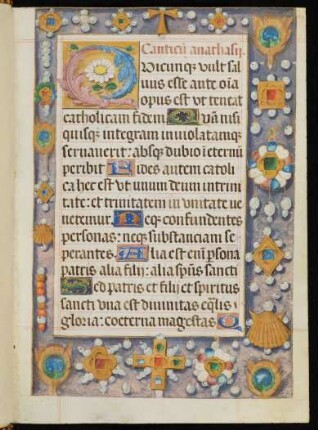 Canticū anathasij.
Quicunqꝫ vult sal
uus esse ante oīa
opus est vt teneat
catholicam fidem. Quā nisi
quisqꝫ integram inuiolatamqꝫ
seruauerit: absqꝫ dubio ī eternū
peribit Fides autem catoli
ca hec est vt unum deum in trini
tate: et trinitatem in vnitate ve
neremur. Neqꝫ confundentes
personas: neqꝫ substanciam se
perantes. Alia est enī psona
patris alia filij: alia spūs sancti
Sed patris et filij et spiritus
sancti vna est diuinitas eqlis
gloria: coeterna magestas Q